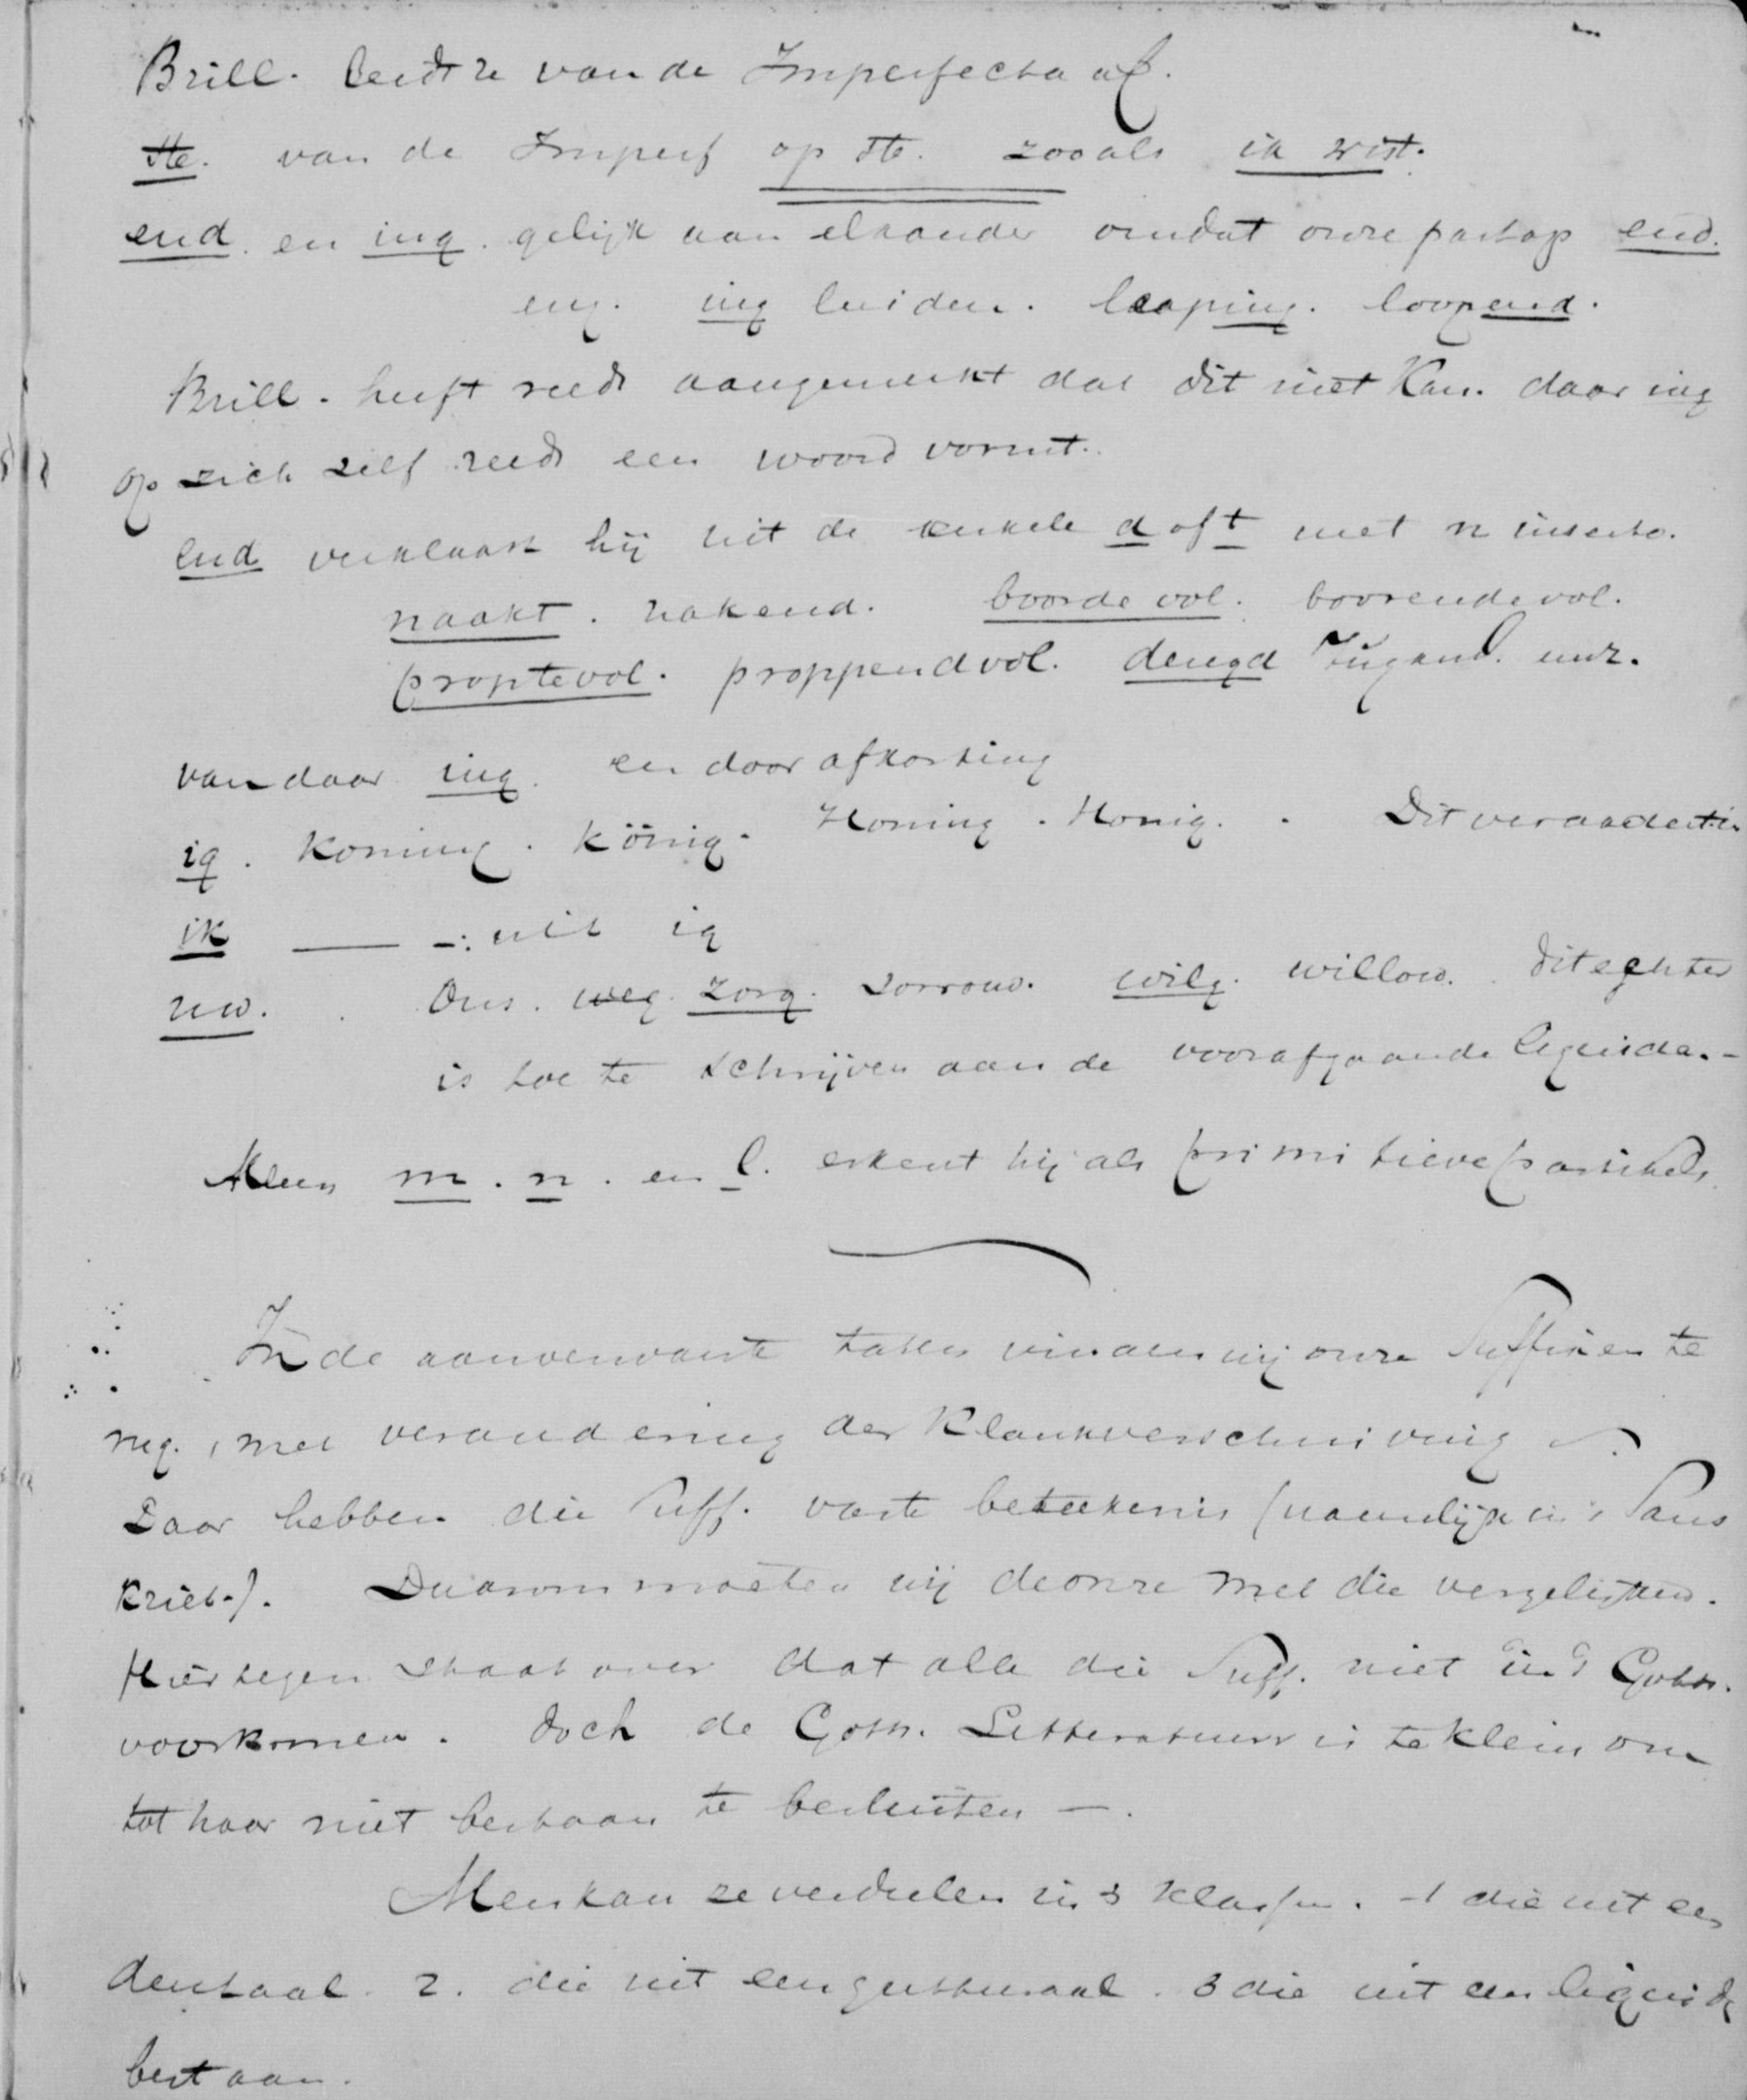 Brill. leidt ze van de Imperfecta af.
ste. van de Imperf op ste. zooals ik wist.
end. en ing. gelijk aan elkander omdat onze part op end.
eng. ing luiden. leaping. loopend.
Brill. heeft reeds aangemerkt dat dit niet kan. daar ing
op zich zelf reeds een woord vormt.
end verklaart hij uit de enkele d of t met n inserto.
naakt. nakend. boordevol. boorendevol.
proptevol. proppendvol. deugd Tugend. enz.
van daar ing. en door afkorting
ig. Koning. König. Honing. Honig. Dit veranderti
ik —— -: uit ig
uw. Ons. weg. zorg. sorrow. wilg. willow. dit echter
is toe te schrijven aan de voorafgaande liquida. -
Alleen m. n. en l. erkent hij als primitieve partikels.
In de aanverwante talen vinden wij onze Suffixen te
rug, met verandering der Klankverschuiving
Daar hebben die Suff. vaste beteekenis (namelijk in 's Sans
kriet.). Daarom moeten wij de onze met die vergelijken.
Hier tegen staat over dat alle die Suff. niet in 't Goth.
voorkomen. doch de Goth. Litteratuur is te klein om
tot haar niet bestaan te besluiten —.
Men kan ze verdeelen in 3 klassen. -1 die uit een
dentaal. 2. die uit een gutturaal. 3 die uit een liquida
bestaan.